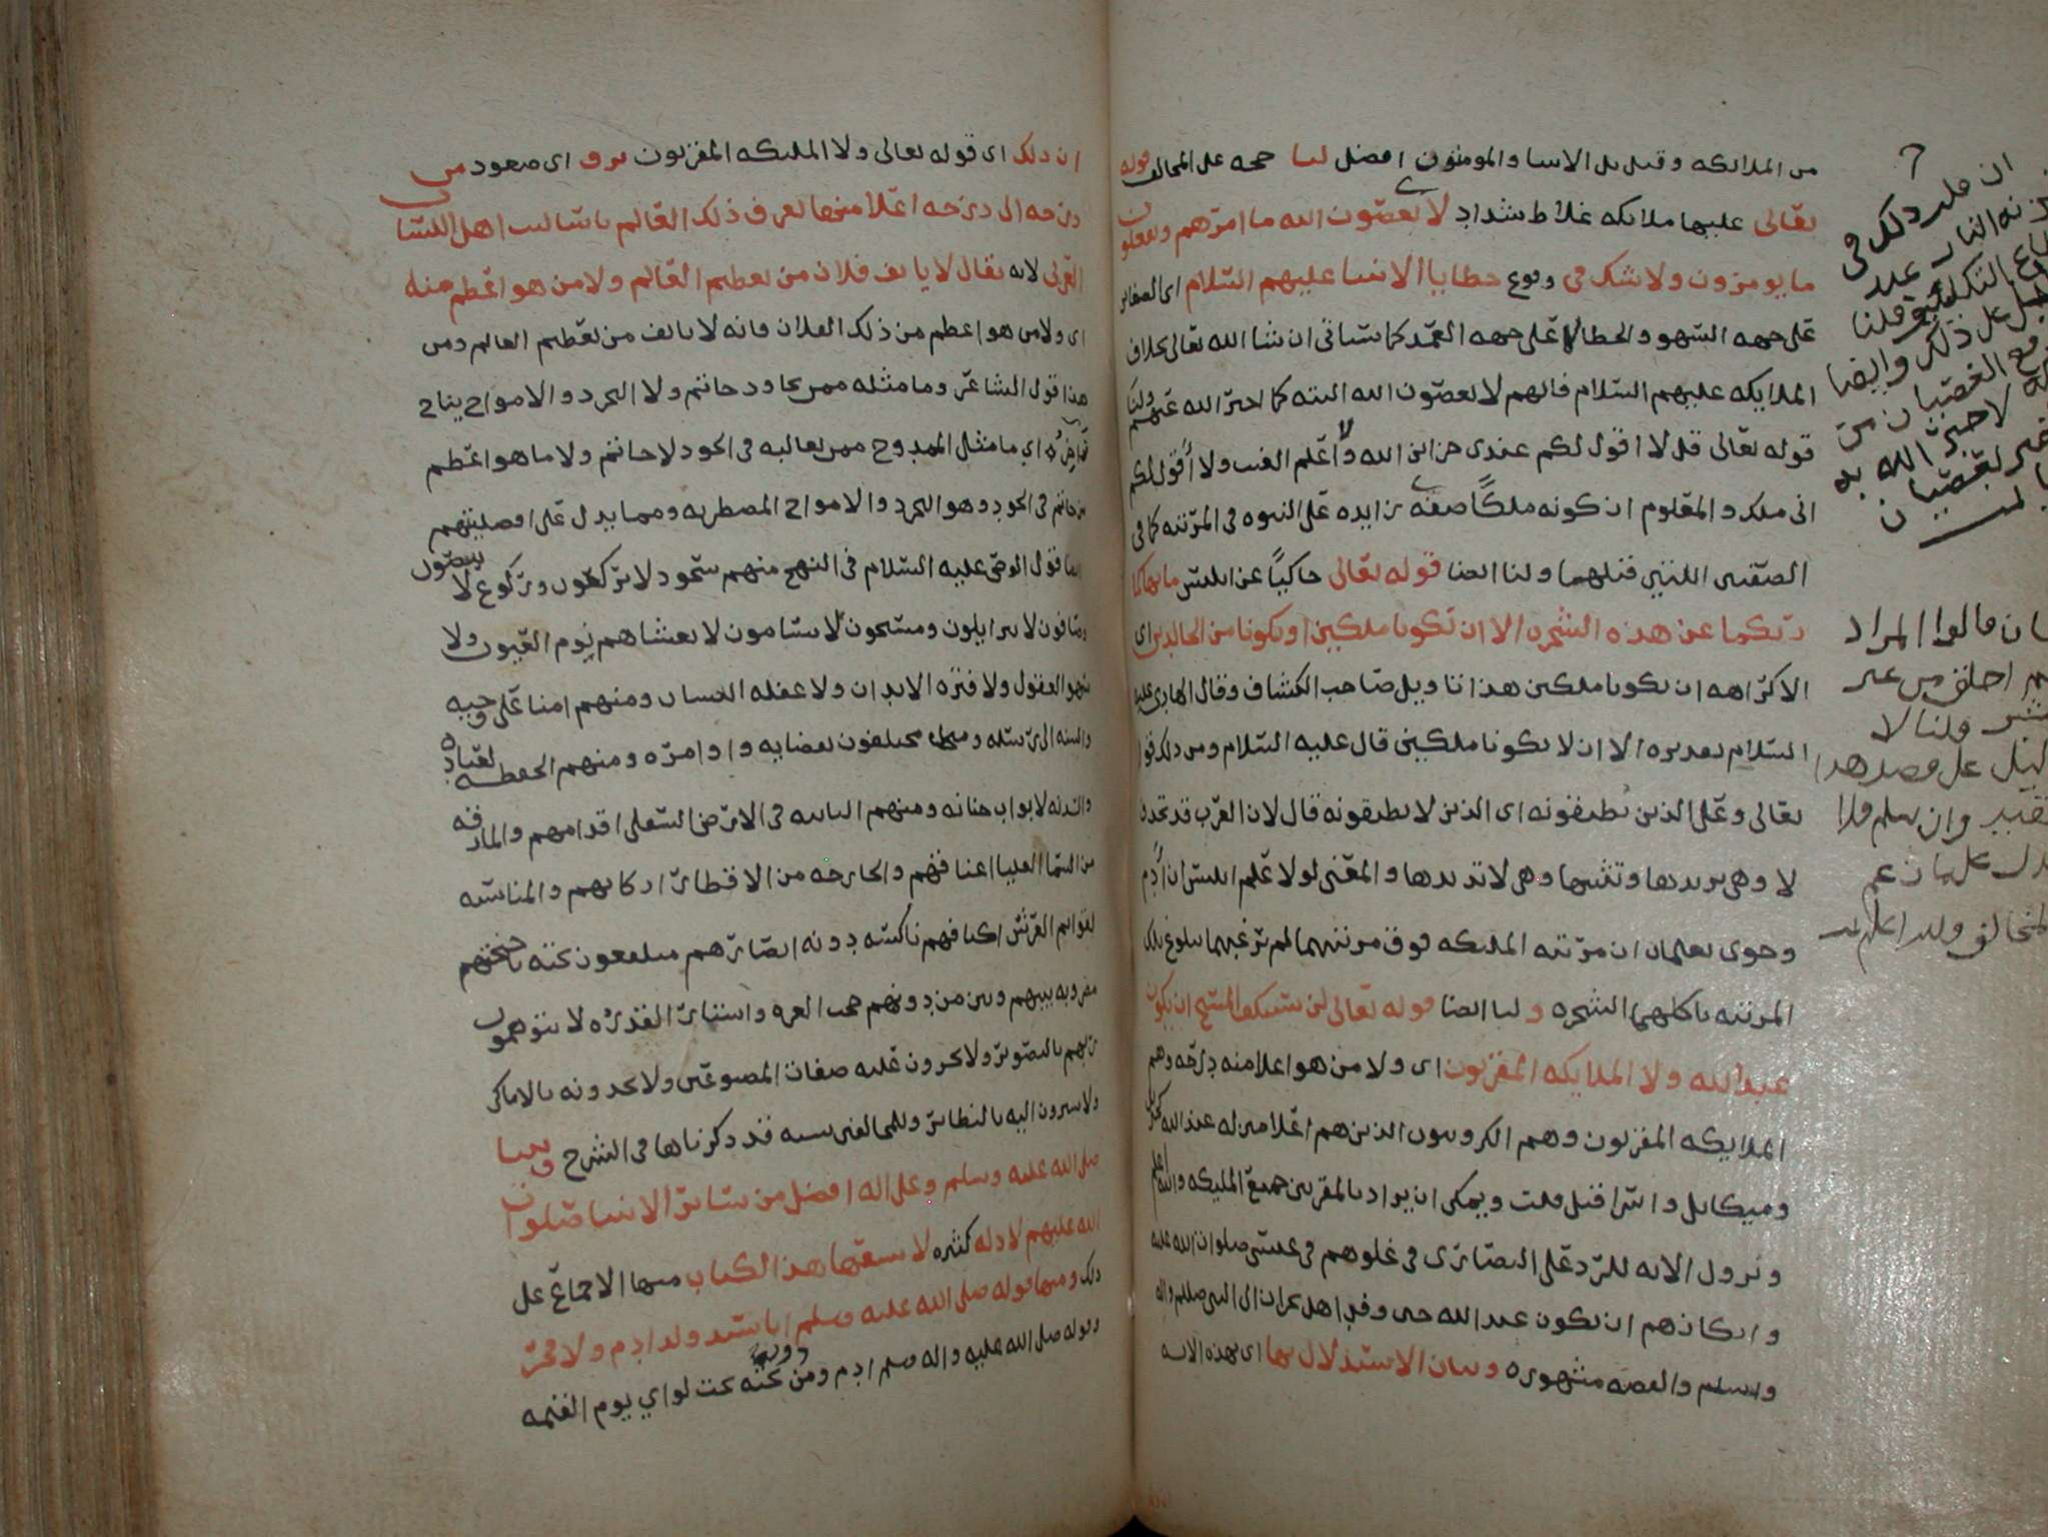 من الملائكه وقيل بل الانبيا والمومنون افضل لنا حجه على المخالف قوله
تعالى عليها ملائكه غلاظ شداد لا يعصون الله ما امرهم ويفعلون
ما يومرون ولا شك في وقوع خطايا الانبيا عليهم السلام اي الصغائر
على جهه السهو والخطا لا على جهه العمد كما سياتي ان شا الله تعالى بخلاف
الملايكه عليهم السلام فانهم لا يعصون الله البته كما اخبر الله عنهم ولنا
قوله تعالى قل لا اقول لكم عندي خزائن الله ولا اعلم الغيب ولا اقول لكم
اني ملك والمعلوم ان كونه ملكًا صفه زايده على النبوه في المرتبه كما في
الصفتين اللتين قبلهما ولنا ايضا قوله تعالى حاكيًا عن ابليس ما نهاكما
ربكما عن هذه الشجره الا ان تكونا ملكين او تكونا من الخالدين اي
الا كراهه ان تكونا ملكين هذا تاويل صاحب الكشاف وقال الهادي عليه
السلام تقديره الا ان لا تكونا ملكين قال عليه السلام ومن ذلك قول
تعالى وعلى الذين يطيقونه اي الذين لا يطيقونه قال لان العرب قد تحذف
لا وهي تريدها وتثبتها وهي لا تريدها والمعنى لولا علم ابليس ان ادم
وحوى يعلمان ان مرتبه المليكه فوق مرتبتهما لم يرغبهما ببلوغ تلك
المرتبه باكلهما الشجره ولنا ايضا قوله تعالى لن يستنكف المسيح ان يكون
عبدا لله ولا الملايكه المقربون اي ولا من هو اعلا منه درجه وهم
الملايكه المقربون وهم الكروبيون الذين هم اعلا منزله عند الله كجبريل
وميكائيل واسرافيل قلت ويمكن ان يراد بالمقربين جميع المليكه والله اعلم
ونزول الايه للرد على النصارى في غلوهم في عيسى صلوات الله عليه
وانكارهم ان يكون عبد الله حين وفد اهل نجران الى النبي صلى الله عليه واله
وسلم والقصه مشهوره وبيان الاستدلال بها اي بهذه الايه
ان قلت ذلك في
النار عند
التكليف قلنا
على ذلك وايضا
العصيان من
لا خبر الله به
العصيان
قالوا المراد
من غير
ولنا لا
دليل على قصد هذا
وان سلم فلا
يدل على ما زعم
المخالف والله اعلم
ان ذلك اي قوله تعالى ولا المليكه المقربون ترق اي صعود من
درجه الى درجه اعلا منها لعرف ذلك العالم باساليب اهل اللسان
العربي لانه يقال لا يانف فلان من تعظيم العالم ولا من هو اعظم منه
اي ولا من هو اعظم من ذلك الفلان فانه لا يانف من تعظيم العالم ومن
هذا قول الشاعر وما مثله ممن يجاود حاتم ولا البحر ذو الامواج يلتج
زاخره اي ما مثل الممدوح ممن يغالبه في الجود لا حاتم ولا ما هو اعظم
من حاتم في الجود وهو البحر ذو الامواج المضطربه ومما يدل على افضليتهم
ايضا قول الوصي عليه السلام في النهج منهم سجود لا يركعون وركوع لا ينتصبون
وصافون لا يتزايلون ومسبحون لا يسامون لا يغشاهم نوم العيون ولا
سهو العقول ولا فتره الابدان ولا غفله النسيان ومنهم امنا على وحيه
والسنه الى رسله ومختلفون بقضايه واوامره ومنهم الحفظه لعباده
والسدنه لابواب جنانه ومنهم الثابته في الارض السفلى اقدامهم والمارقه
من السما العليا اعناقهم والخارجه من الاقطار اركانهم والمناسبه
لقوائم العرش اكتافهم ناكسه دونه ابصارهم متلفعون تحته باجنحتهم
مضروبه بينهم وبين من دونهم حجب العزه واستار القدره لا يتوهمون
ربهم بالتصوير ولا يجرون عليه صفات المصنوعين ولا يحدونه بالاماكن
ولا يشيرون اليه بالنظائر وللمخالفين شبه قد ذكرناها في الشرح ونبينا
صلى الله عليه وسلم وعلى اله افضل من سائر الانبيا صلوات
الله عليهم لادله كثيره لا يسعها هذا الكتاب منها الاجماع على
ذلك ومنها قوله صلى الله عليه وسلم انا سيد ولد ادم ولا فخر
وقوله صلى الله عليه واله وسلم ادم ومن دونه تحت لواي يوم القيمه